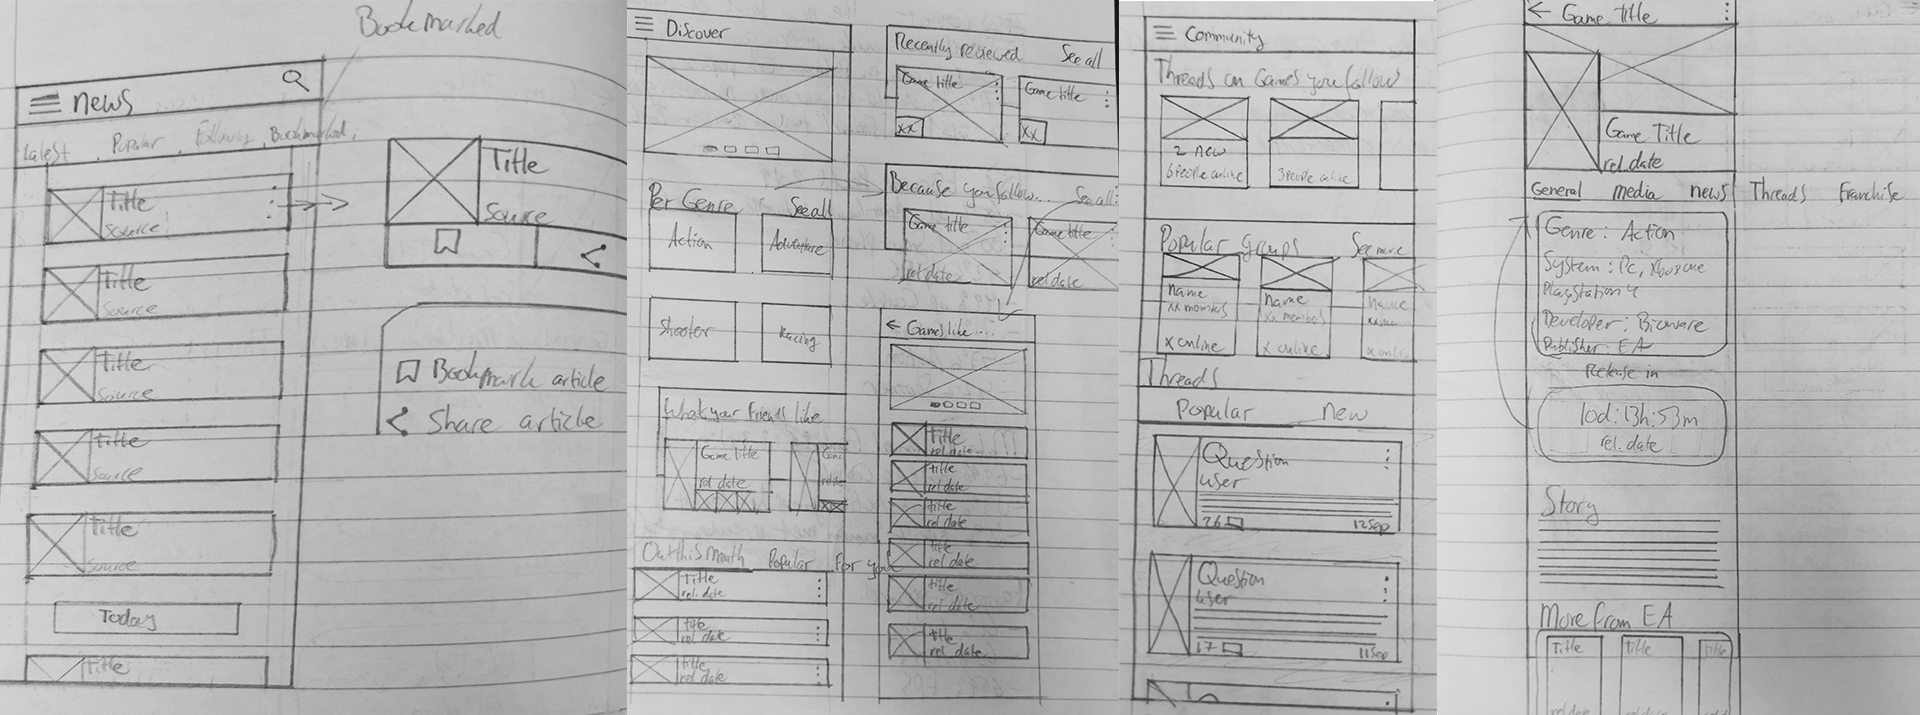 Bookmarked
news
Latest Popular Following Bookmarked
Title
Source
Title
Source
Title
Source
Title
Source
Title
Source
Today
Title
Title
Source
Bookmark article
Share article
Discover
Per Genre See all
Action Adventure
Shooter Racing
What your friends like
Game title
rel date
Out this month Popular For you
Title
rel. date
title
rel date
title
rel date
Recently reviewed See all
Game title Game title
XX XX
Because you follow... See all
Game title Game title
rel date rel date
Games like....
Title
rel date
title
rel date
title
rel date
title
rel date
title
rel date
title
rel date
Community
Threads on Games you follow
2 new
5 people online 3 people online
Popular groups See more
name name name
xx members xx members
x online x online x online
Threads
Popular new
Question
user
26 12 Sep
Question
user
17 11 Sep
Game Title
Game Title
rel. date
General media news Threads Franchise
Genre: Action
System: Pc, Xbox one
Playstation 4
Developer: Bioware
Publisher: EA
Release in
10d:13h:53m
rel. date
Story
More from EA
Title Title Title
rel. date rel. date